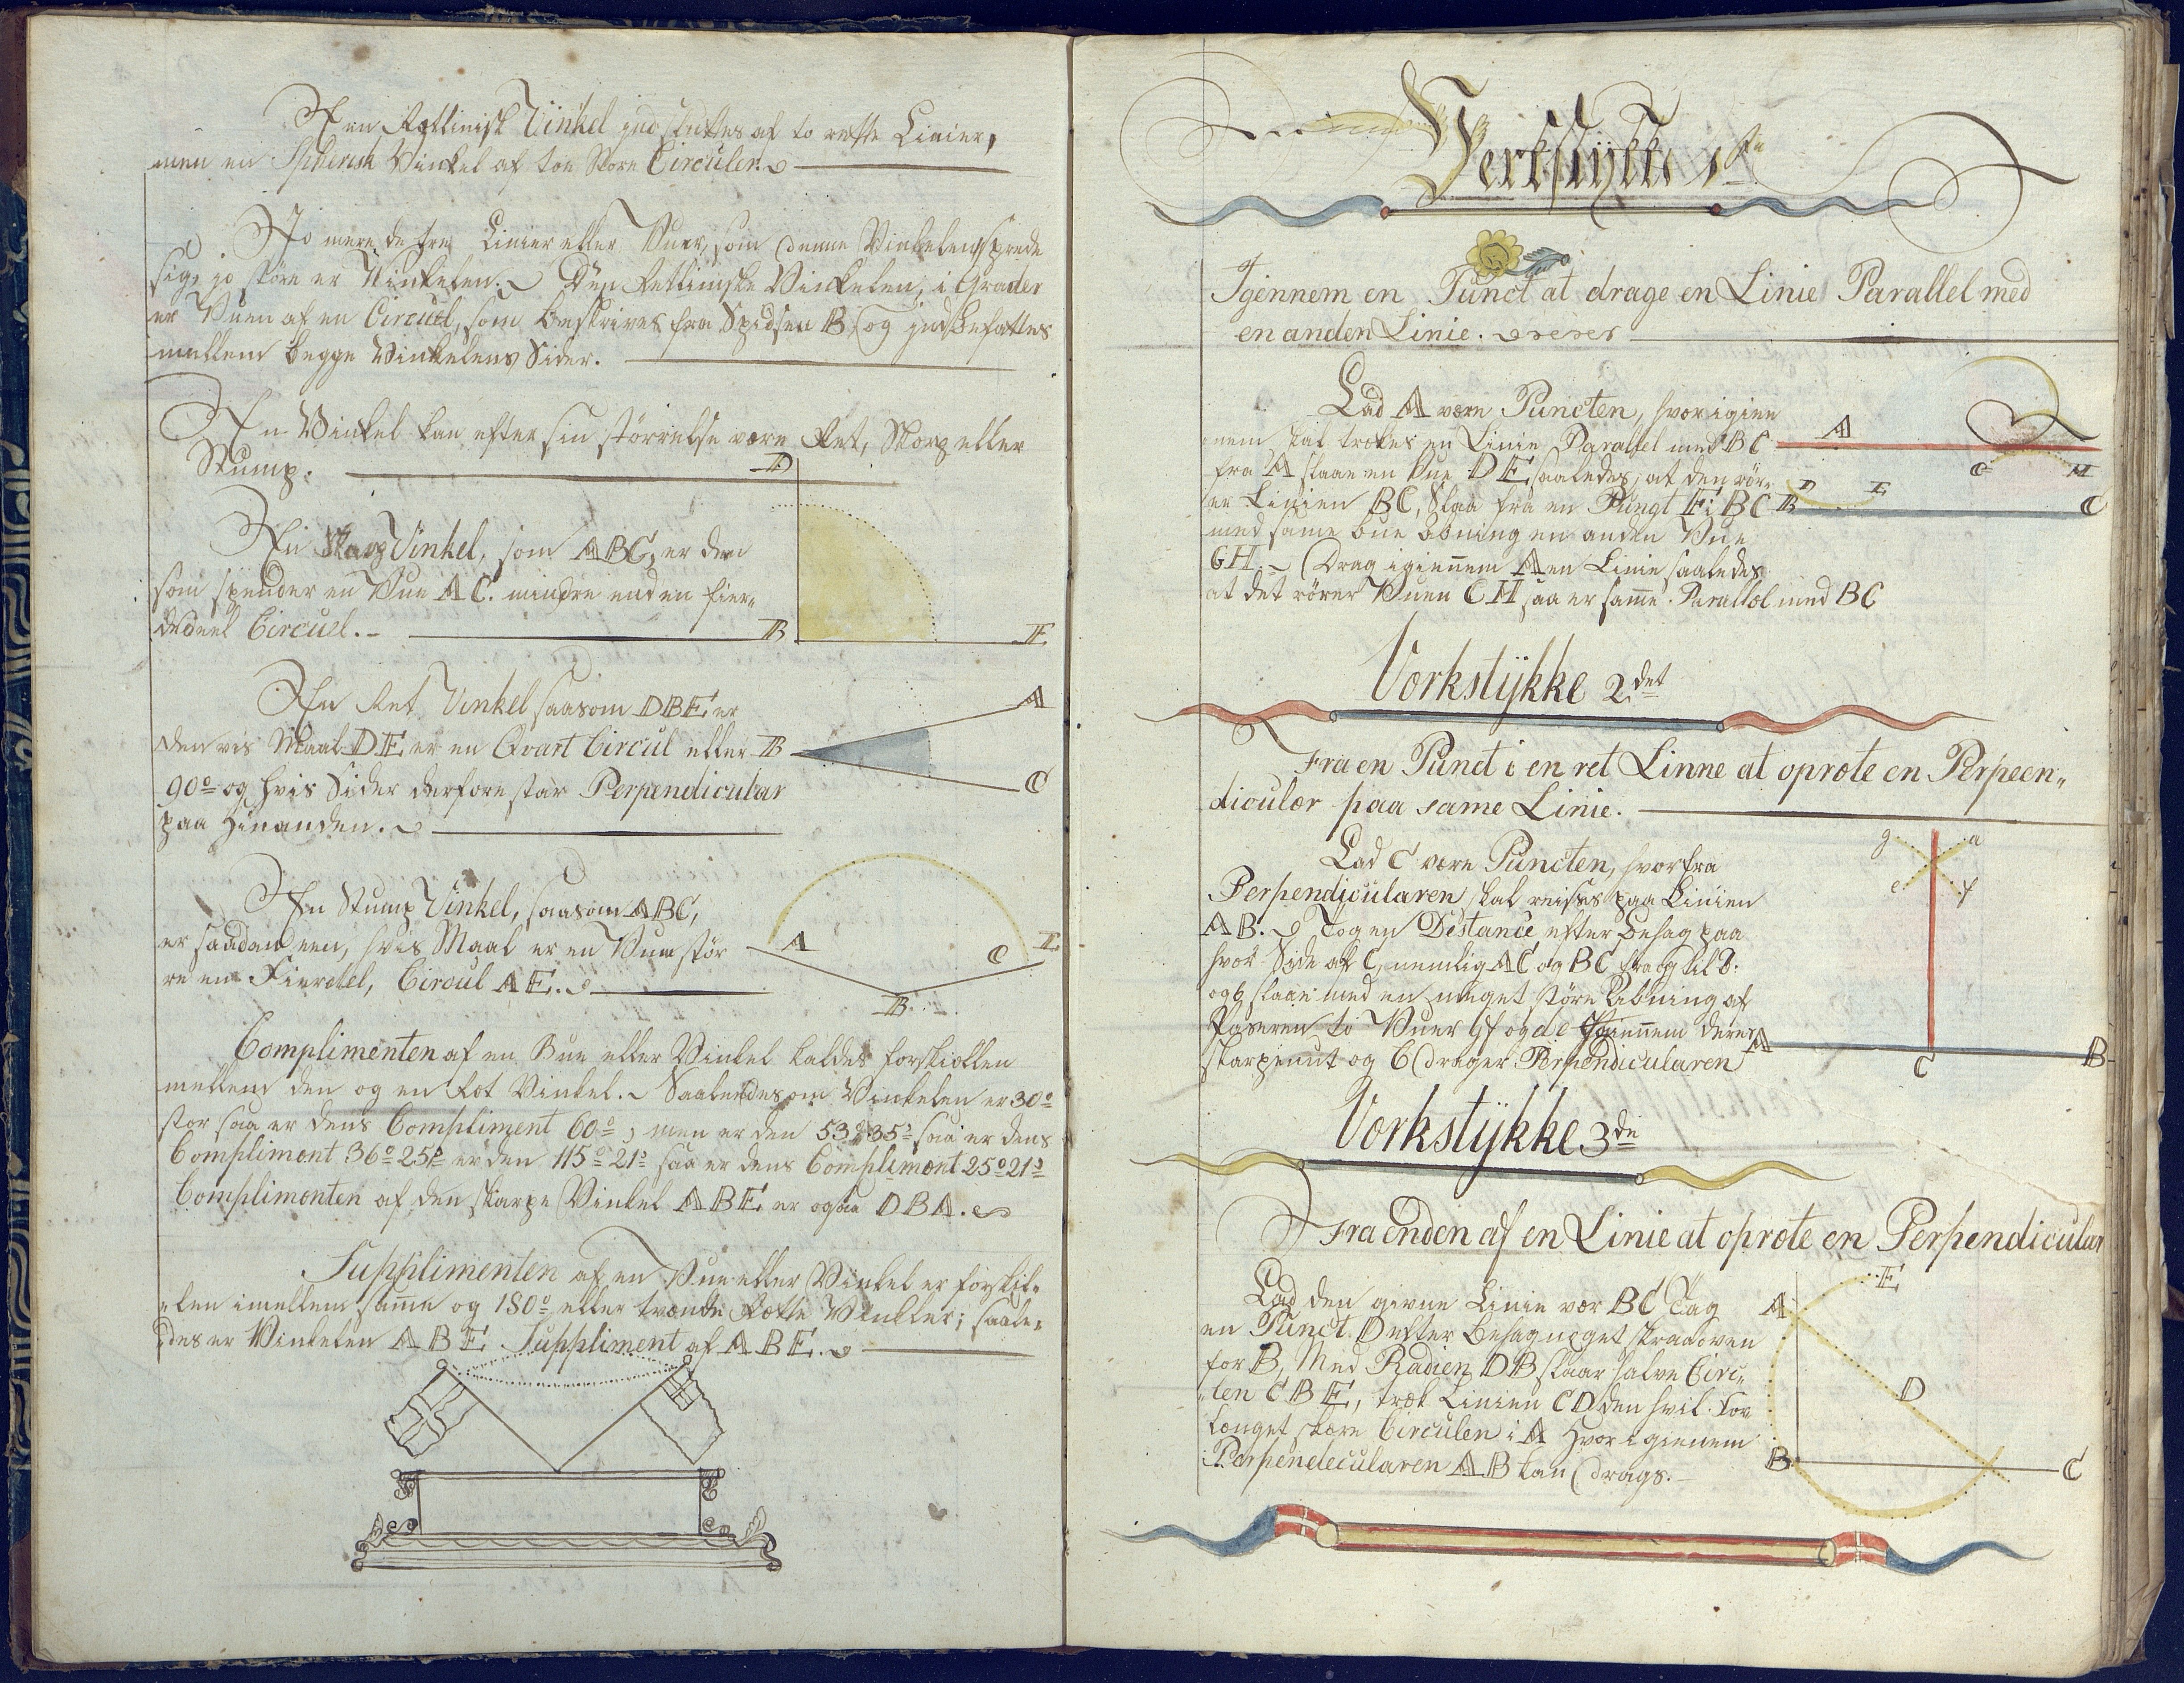 En Retlinisk Vinkel indsluttes af to rette Linier,
men en Spherisk Vinkel af toe Store Circuler.
Jo mere de tre Linier eller Buer, som denne Vinkelen sprede
sig, jo störe er Vinkelen. Den Retliniske Vinkelen, i Grader
er Buen af en Circuel, som beskrives fra Spidsen B, og indbefattes
mellem begge Vinkelens Sider.
En Vinkel kan efter sin störrelse være Ret, Skarp eller
Stump.
D
En Skarp Vinkel, som ABC, er den
som spender en Bue AC. mindre end en fier„
dedeel Circuel.
B E
En Ret Vinkel saasom DBE er
A
den vis Maal DE er en Qvart Circul eller
B
90º og hvis Sider derfore star Perpendicular
C
paa hinanden.
En Stump Vinkel, saasom ABC,
er saadan een, hvis Maal er en Bue stör
A C E
re en Fierdel, Circul AE.
B
Complimenten af en Bue eller Vinkel kaldes forskiellen
mellem den og en Ret Vinkel. Saaledes om Vinkelen er 30º
stor saa er dens Compliment 60º, men er den 53º35' saa er dens
Compliment 36º25' er den 115º21' saa er dens Compliment 25º21'
Complimenten af den skarpe Vinkel ABE er ogsaa DBA.
Supplimenten af en Bue eller Vinkel er forskil„
„len imellem samme og 180º eller tvende Rette Vinkler; saale„
des er Vinkelen ABE Suppliment af ABE.
Verkstÿkke 1te
Igennem en Punct at drage en Linie Parallel med
en anden Linie.
Lad A være Puncten, hvor igien
nem skal trekes en Linie Parallel med BC
A
fra A slaae en Bue DE saaledes, at den rör„
G H
D E
er Linien BC, Slaa fra en Pungt F i BC
B C
med same bue Abning en anden Bue
GH. Drag igiennem A en Linie saaledes
at det rörer Buen GH saa er same Parallel med BC
Vorkstÿkke 2det
Fra en Punct i en ret Linne at oprete en Perpeen„
diculær paa same Linie.
Lad C være Puncten, hvorfra
g a
Perpendicularen skal reises paa Linien
e f
AB. Tog en Distance efter Behag paa
hvor Side af C, nemlig AC og BC fra og til
og slaae med en meget störe Aabning af
Paseren to Buer gf og de Igiennem deres
skarpunct og C drager Perpendicularen
A C B
Vorkstÿkke 3de
Fra enden af en Linie at oprete en Perpendicular
E
Lad den givne Linie vær BC Tag
A
en Punct D efter Behag noget skraa oven
for B, Med Radien DB slaar halve Circ„
„len CBE, træk Linien CD den hvil for
D
længet skære Circulen i A hvor igienem
Perpendecularen AB kan drags.
B C